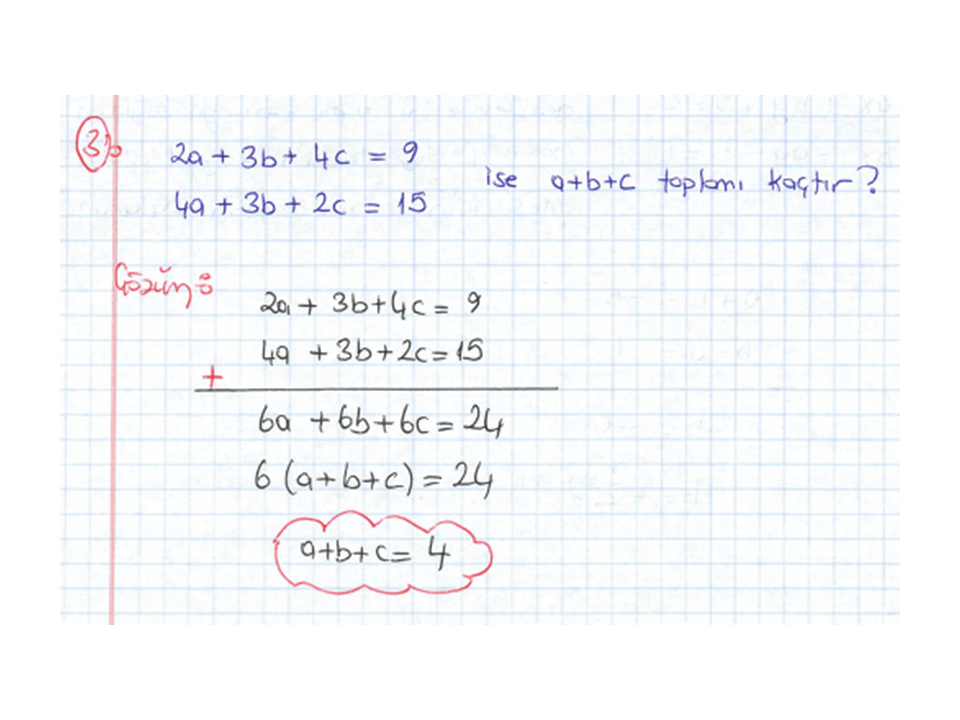 3) 2a + 3b + 4c = 9
4a + 3b + 2c = 15
ise a+b+c toplamı kaçtır?
Çözüm:
2a + 3b+4c = 9
4a + 3b+2c=15
+
6a +6b+6c = 24
6 (a+b+c) = 24
a+b+c= 4